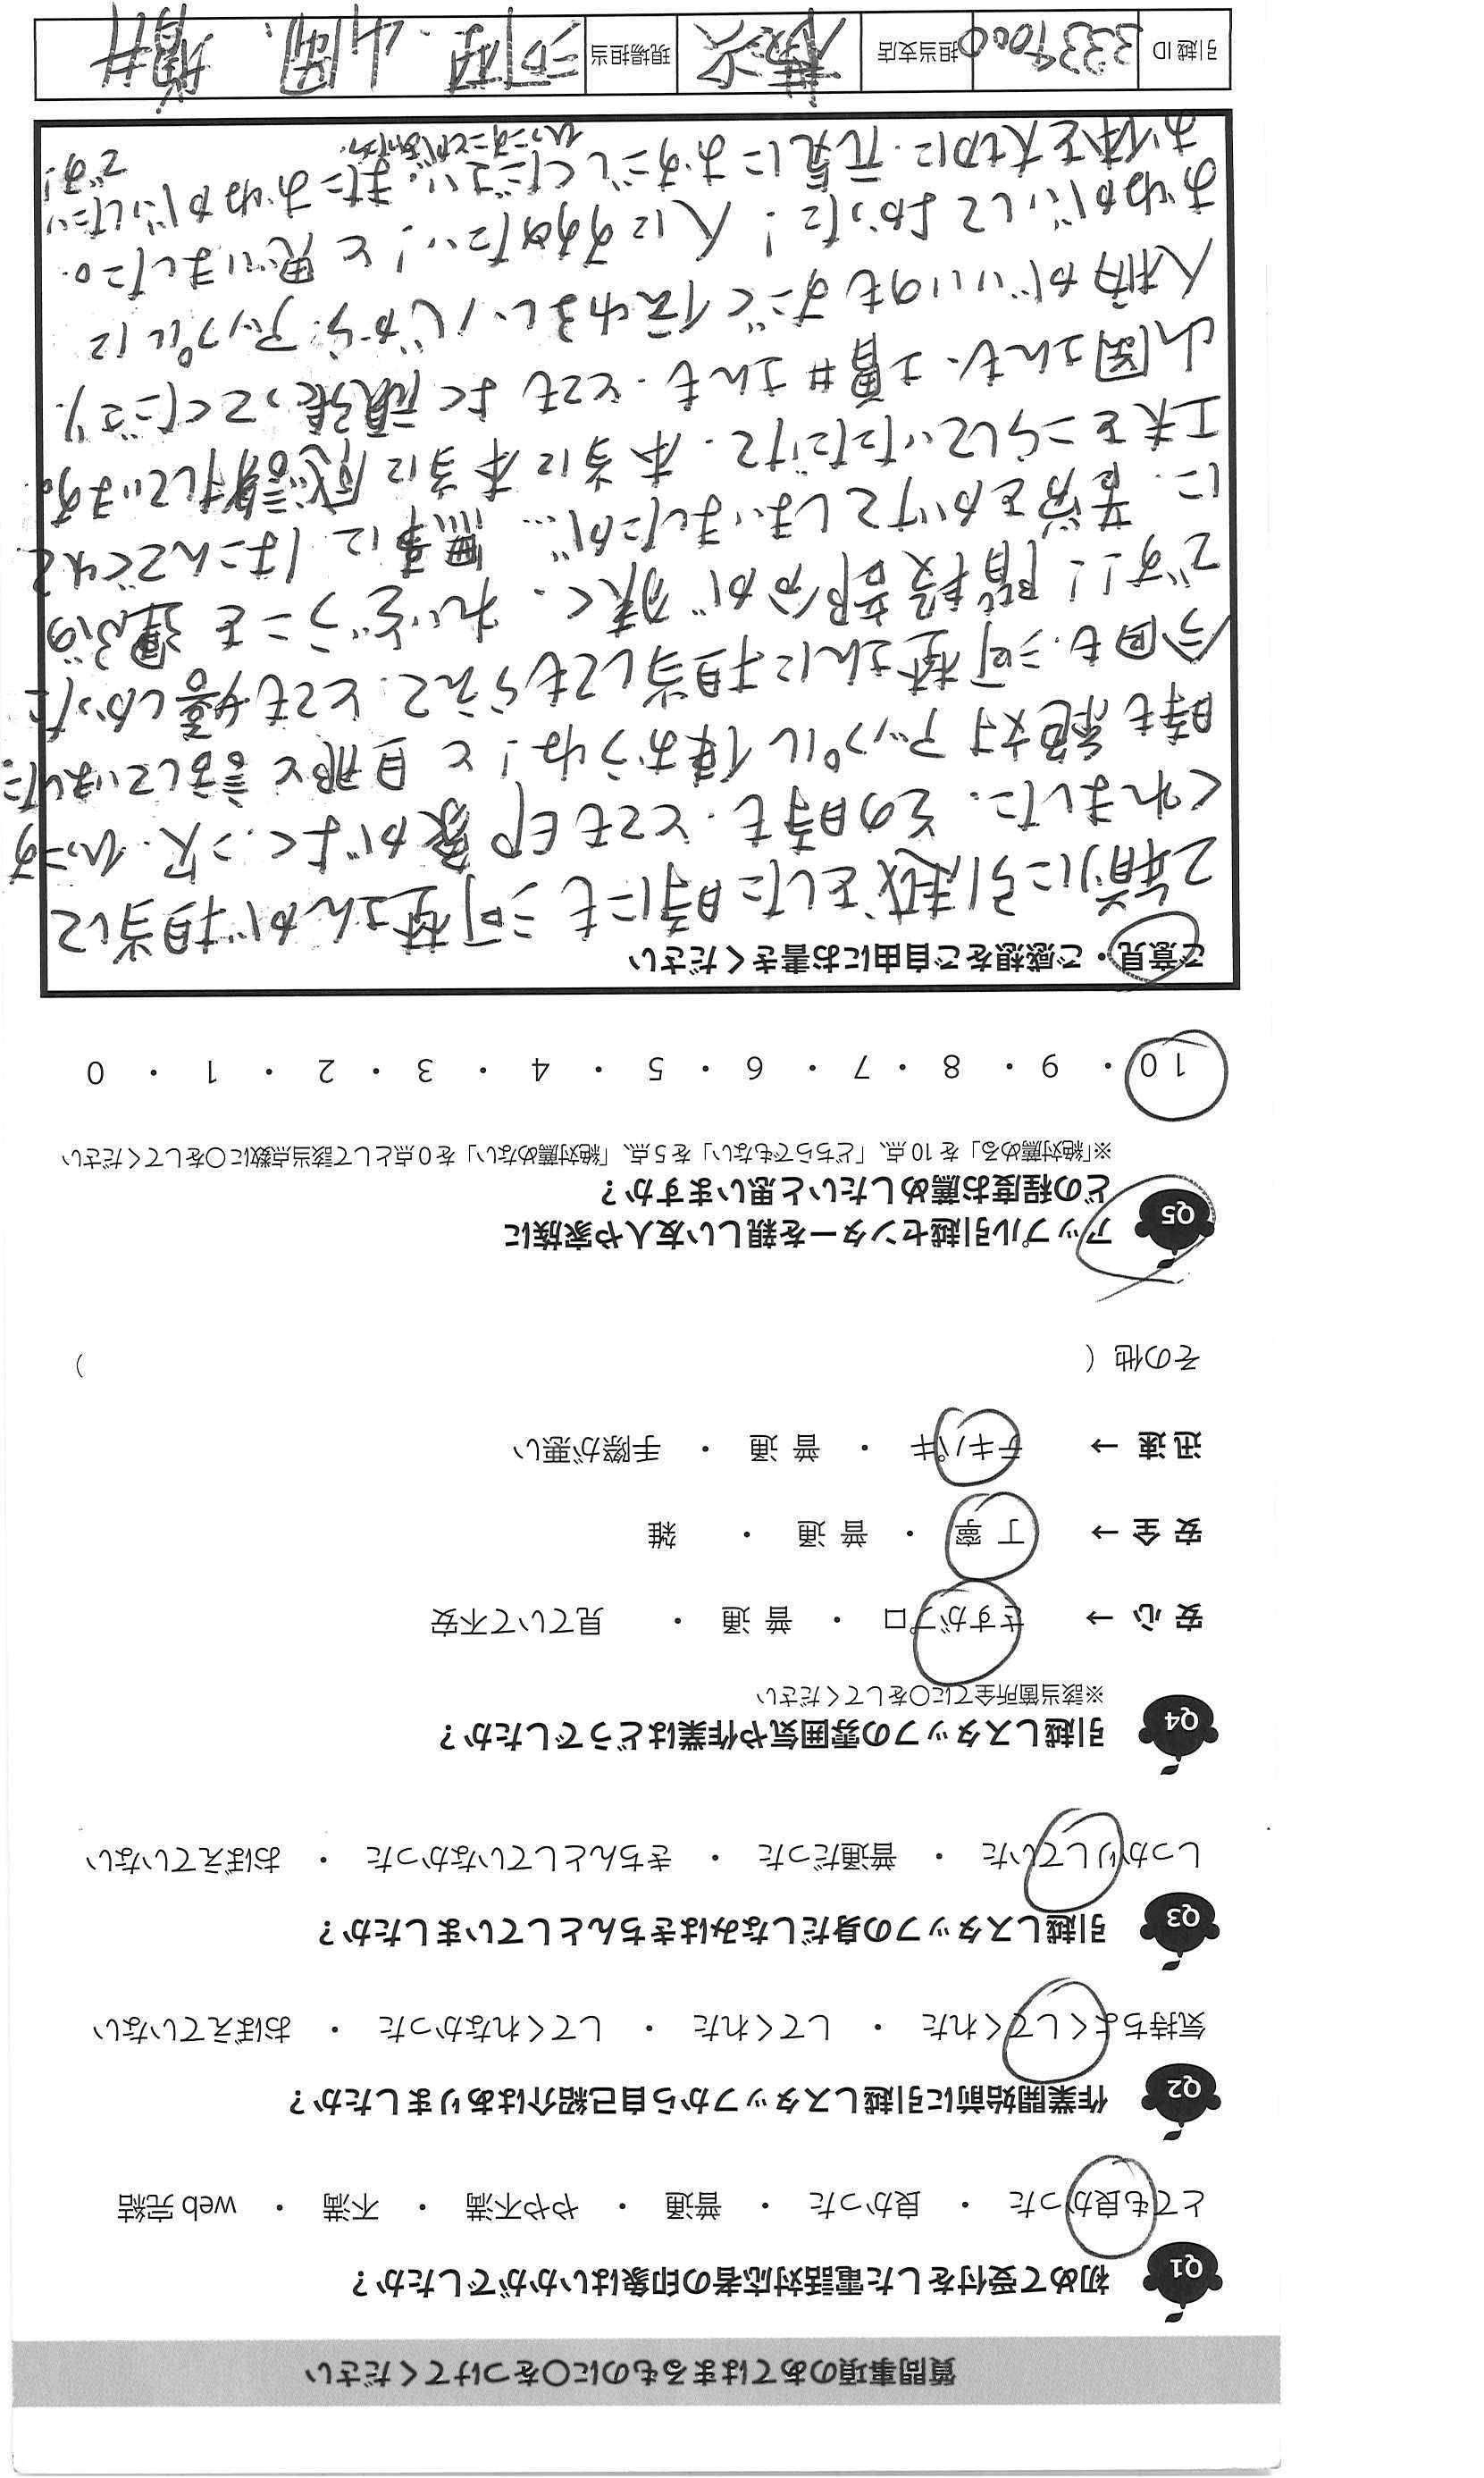 質問事項のあてはまるものに〇をつけてください
Q1 初めて受付をした電話対応者の印象はいかがでしたか？
とても良かった ・ 良かった ・ 普通 ・ やや不満 ・ 不満 ・ web 完結
Q2 作業開始前に引越しスタッフから自己紹介はありましたか？
気持ちよくしてくれた ・ してくれた ・ してくれなかった ・ おぼえていない
Q3 引越しスタッフの身だしなみはきちんとしていましたか？
しっかりしていた ・ 普通だった ・ きちんとしていなかった ・ おぼえていない
Q4 引越しスタッフの雰囲気や作業はどうでしたか？
※該当箇所全てに〇をしてください
安心 → さすがプロ ・ 普通 ・ 見ていて不安
安全 → 丁寧 ・ 普通 ・ 雑
迅速 → テキパキ ・ 普通 ・ 手際が悪い
その他（ ）
Q5 アップル引越センターを親しい友人や家族に
どの程度お薦めしたいと思いますか？
※「絶対薦める」を 10 点、「どちらでもない」を 5 点、「絶対薦めない」を 0 点として該当点数に〇をしてください
10 ・ 9 ・ 8 ・ 7 ・ 6 ・ 5 ・ 4 ・ 3 ・ 2 ・ 1 ・ 0
ご意見・ご感想をご自由にお書きください
2年前に引越をした時にも河埜さんが担当して
くれました、その時も、とても印象がよく、次、ひっこす
時も絶対アップル使おうね！と旦那と話していました。
今回も、河埜さんに担当してもらえて、とても嬉しかった
です！！階段部分が狭く、れいぞうこを運ぶの
に、苦労をかけてしまいましたが… 無事に、はこんでくれて
工夫をこらしていただけて、本当に本当に感謝しています。
山岡さんも、増井さんも、とてもよく頑張ってくださり、
人柄がいいのもすごく伝わるし、心から、アップルに
おねがいしてよかった！人にすすめたい！と思いました。
お体を大切に、元気におすごしください、また
ひっこすことがあれば、
おねがいしたい
です！
引越ID 3339000 担当支店 横浜 現場担当 河埜、山岡、増井